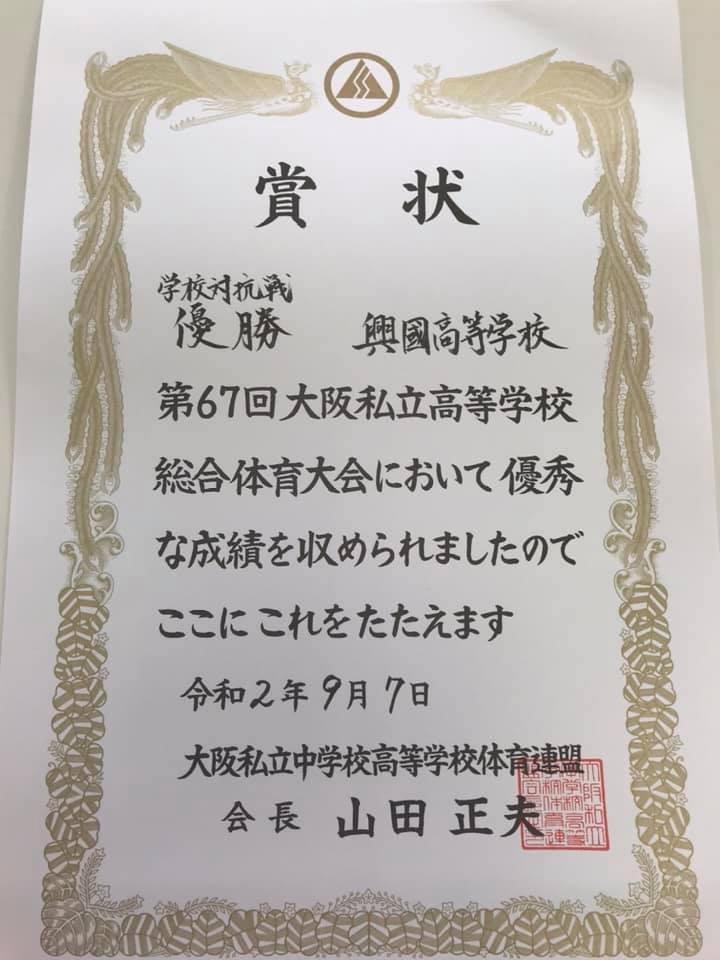 賞状
学校対抗戦
優勝 興國高等学校
第67回大阪私立高等学校
総合体育大会において優秀
な成績を収められましたので
ここにこれをたたえます
令和2年9月7日
大阪私立中学校高等学校体育連盟
会長 山田正夫